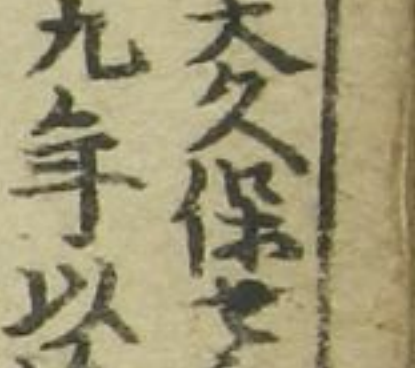 大久保
九年以